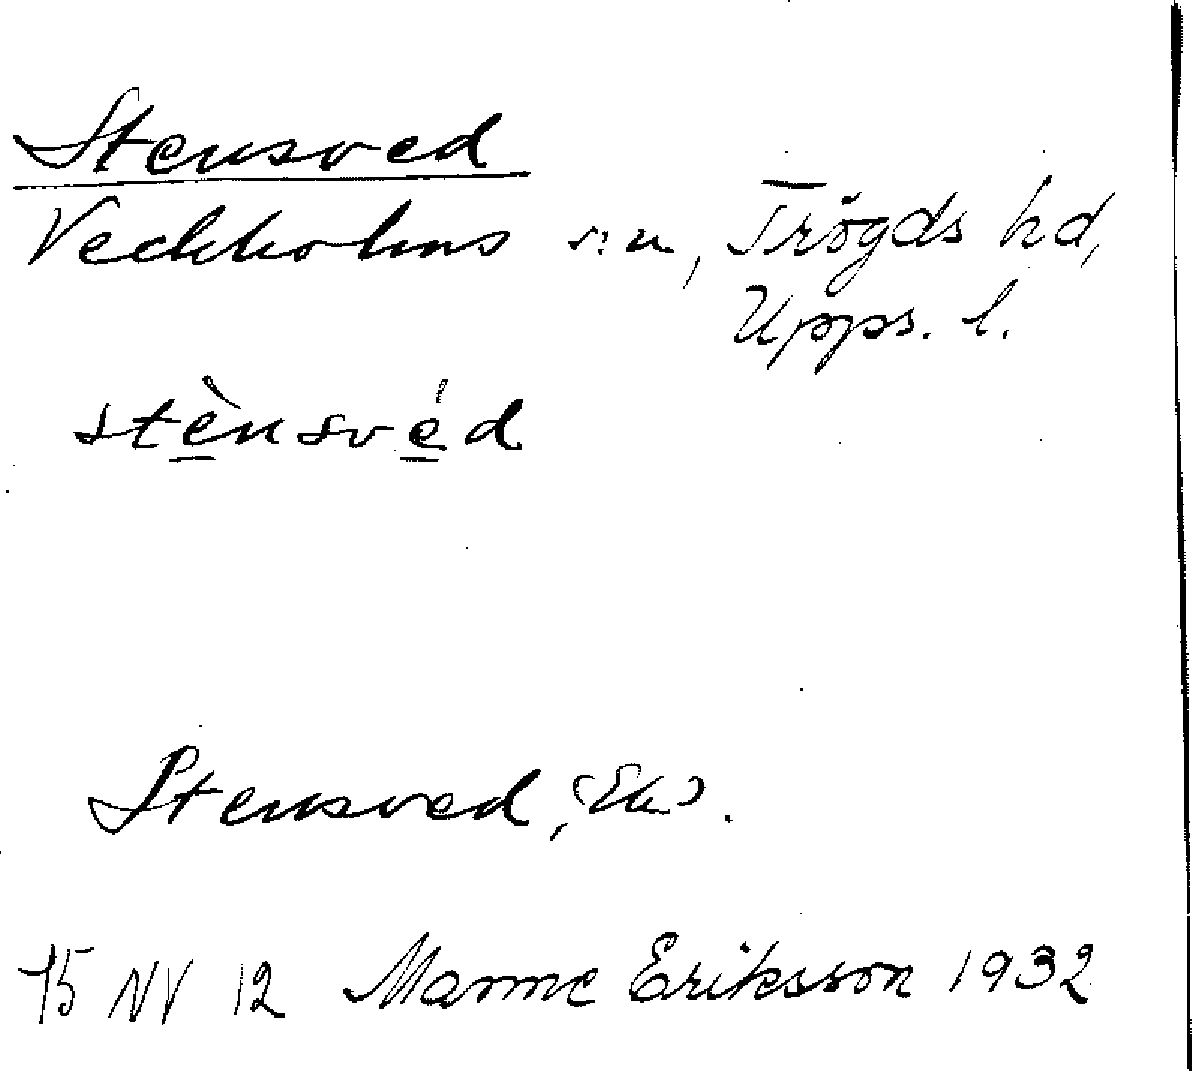 Stensved
Veckholms sn, Trögds hd,
Upps. l.
stènsvéd
Stensved, (Ek).
75 NV 12 Manne Eriksson 1932